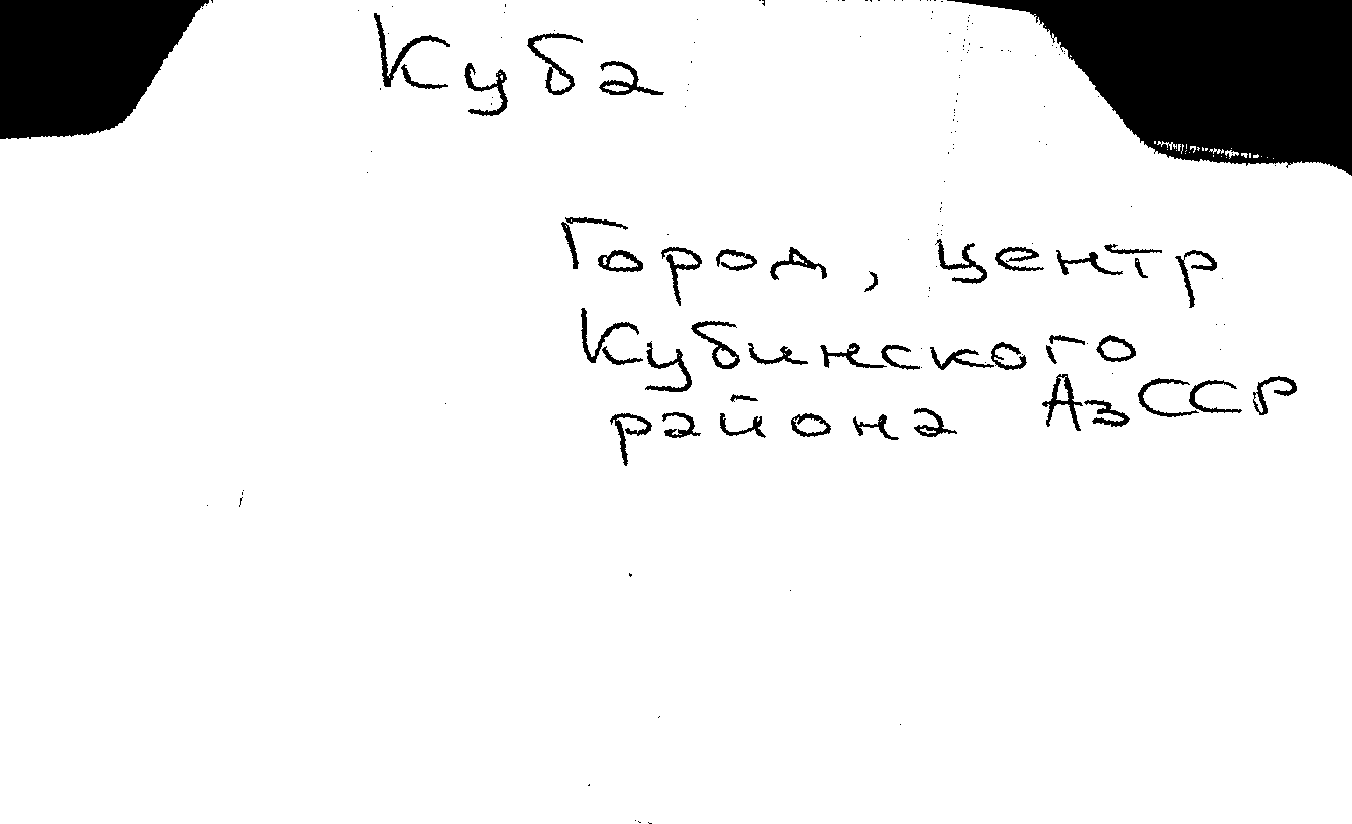 Куба
Город, центр
Кубинского
района АзССР